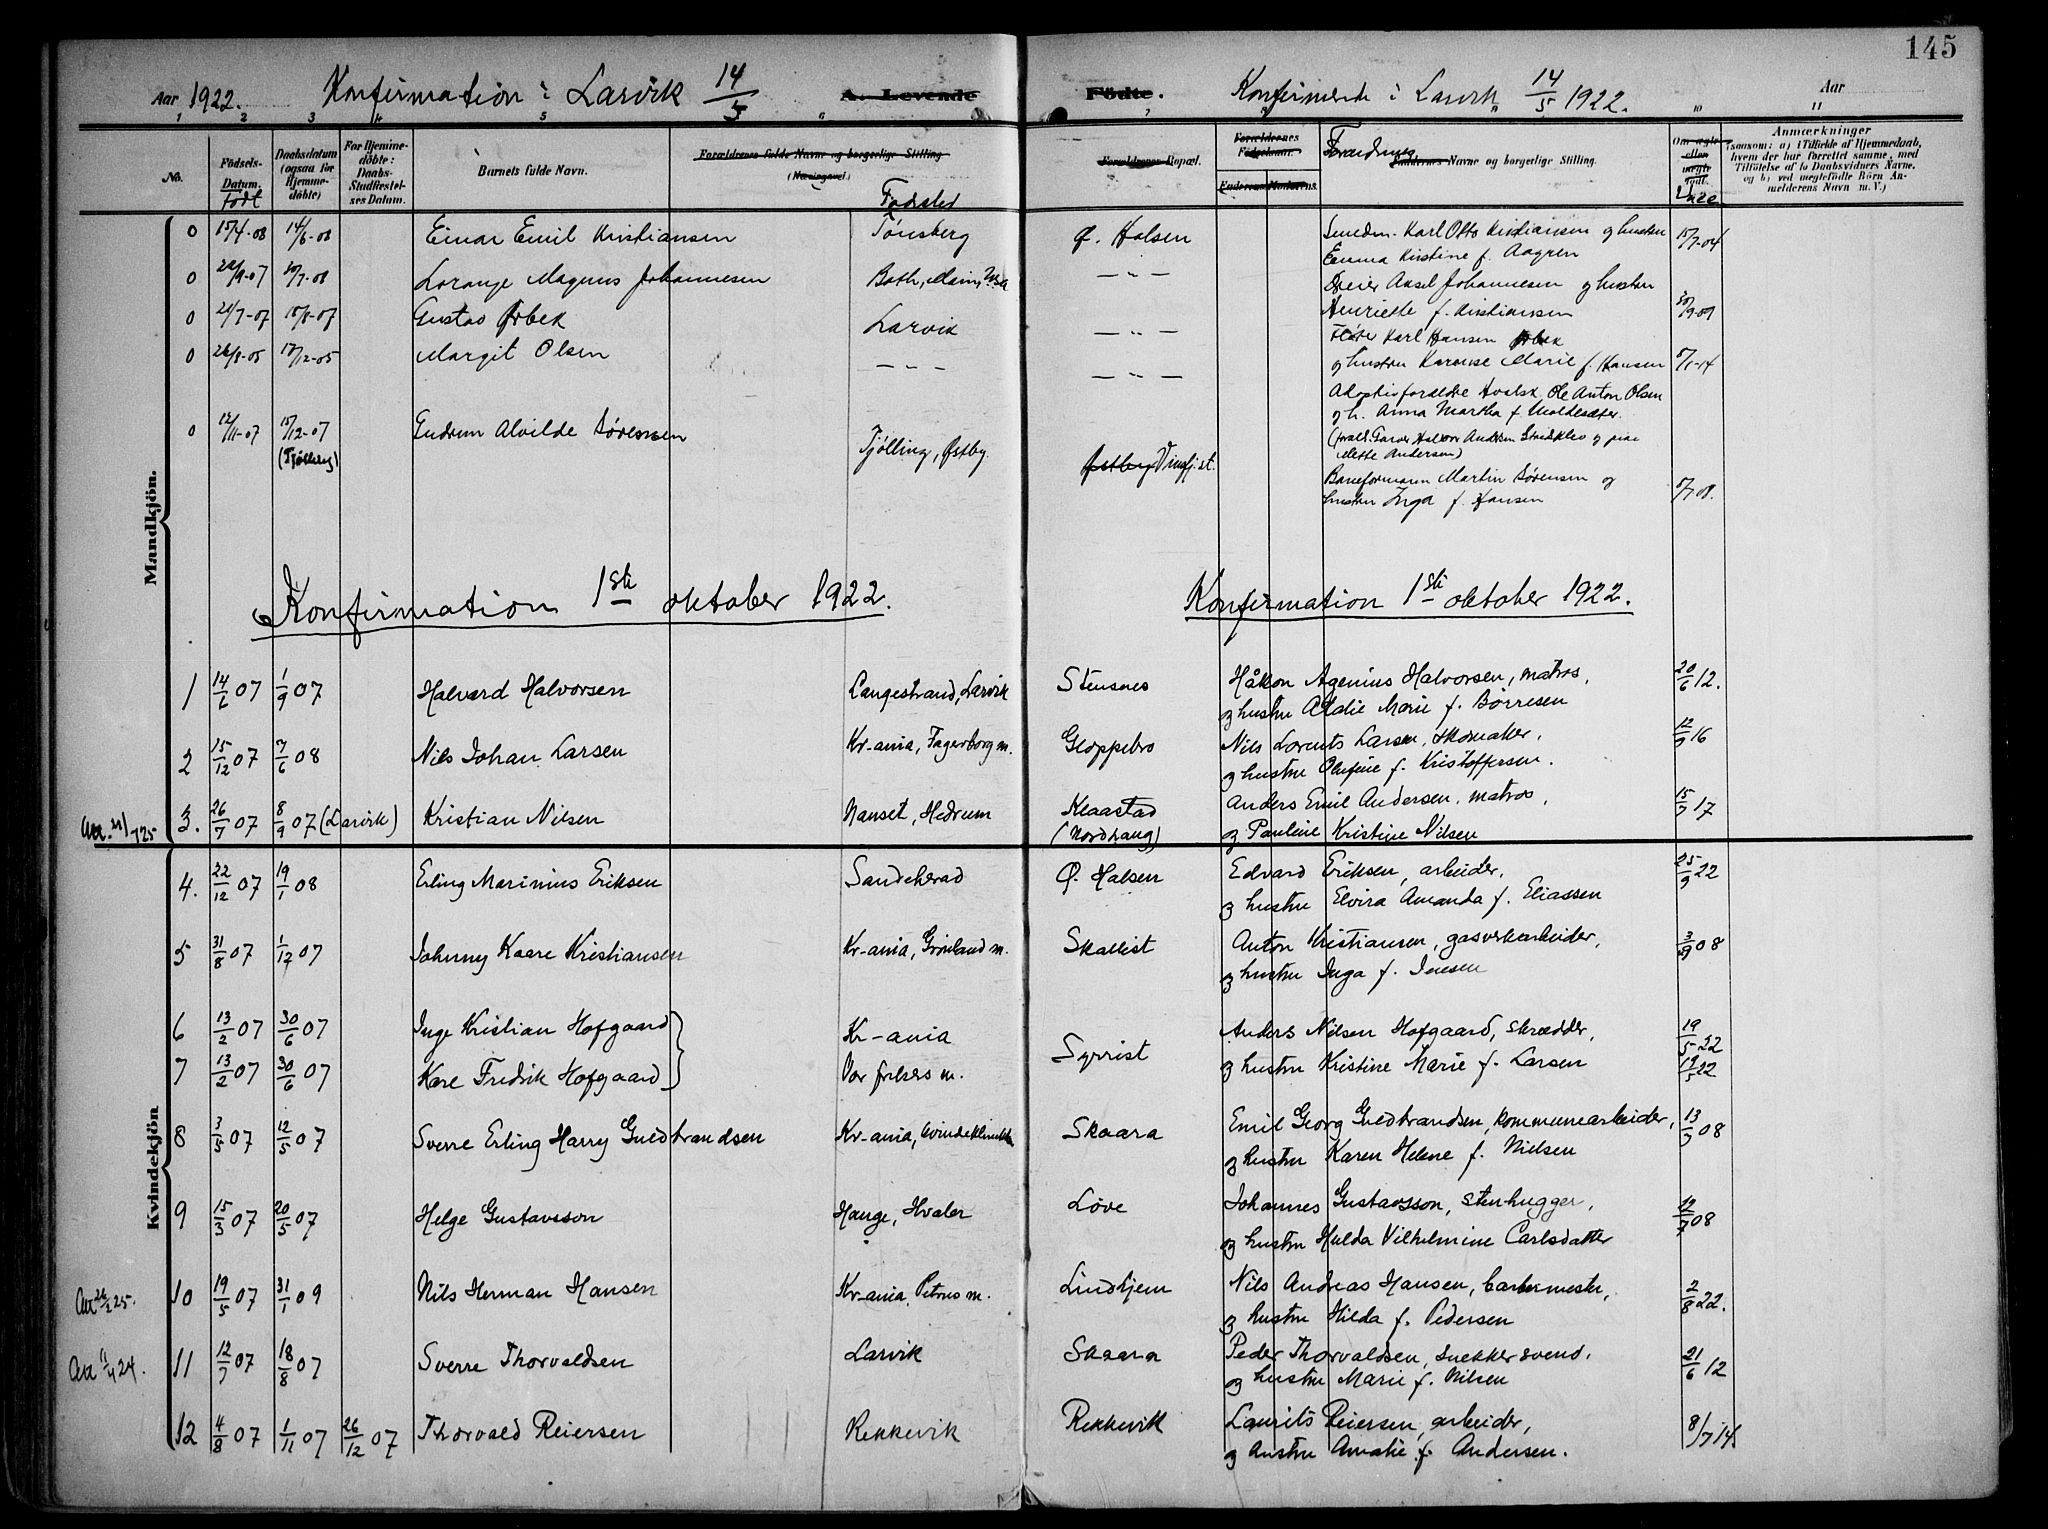 145
Aar 1922. Konfirmation i Larvik 14/5 A. Levende
Födte. Konfirmerte i Larvik 14/5 1922. Aar
1 2 3 4 5 6
7 8 9 10 11
No.
Födsels-Datum. født
Daabsdatum (ogsaa for Hjemmedöbte)
For Hjemmedöbte: Daabs-Stadfæstelses Datum.
Barnets fulde Navn.
Forældrenes fulde Navne og borgerlige Stilling (Næringsvei)
Fødested
Forældrenes Bopæl.
Forældrenes Födselsaar.
Faderens Moderens
Faddernes Navne og borgerlige Stilling.
Om ægte eller uægte født.
Anmærkninger
(saasom: a) i Tilfælde af Hjemmedaab, hvem der har forrettet samme, med Tilföielse af to Daabsvidners Navne, og b) ved uægtefödte Börn Anmelderens Navn m. V.)
Mandkjön.
0 15/4-08 14/6-08 Einar Emil Kristiansen Tønsberg Ø. Halsen Karl Otto Kristiansen og hustru 15/7-04
Emma Kristine f. Aagren
0 /9-07 /7-08 Lorange Magnus Johannesen — " — Aksel Johannesen og hustru
Henriette f. Kristiansen /9-09
0 21/7-07 15/8-07 Gustav Ørbek Larvik — " — Karl Hansen Ørbek
og hustru Marie f. Hansen
0 17/12-05 Margit Olsen — " — — " — Adoptivforældre Ole Anton Olsen
og h. Anna Martha f.
Andersen
Mette Andersen)
0 12/11-07 15/12-07 (Tjølling) Gudrun Alvilde Sørensen Tjølling, Østby. Østby Baneformann Martin Sørensen og
hustru Inga f. Hansen 5/7 08.
Konfirmation 1ste oktober 1922.
Konfirmation 1ste oktober 1922.
1 14/6 07 1/9 07 Halvard Halvorsen Langestrand, Larvik Stensnes Håkon Agenius Halvorsen, matros, 20/6 12.
og hustru Adalie Marie f. Børresen
2 15/12 07 7/6 08 Nils Johan Larsen Kr-ania, Fagerborg m. Gloppebro Nils Lorents Larsen, skomaker, 12/9 16
og hustru Olufine f. Kristoffersen.
3. 26/7 07 8/9 07 (Larvik) Kristian Nilsen Nanset, Hedrum Klaastad Anders Emil Andersen, matros, 15/7 17
(Nordhaug) og Pauline Kristine Nilsen
Kvindekjön
4. 22/12 07 19/1 08 Erling Marinius Eriksen Sandeherad Ø. Halsen Edvard Eriksen, arbeider, 25/9 22
og hustru Elvira Amanda f. Eliassen
5 31/8 07 1/12 07 Johnny Kaare Kristiansen Kr-ania, Grønland m. Skallist Anton Kristiansen, gasverkarbeider, 08
og hustru Inga f. Jensen
6 13/2 07 30/6 07 Inge Kristian Hofgaard Kr-ania Anders Nilsen Hofgaard, skrædder, 19/5 22
7 13/2 07 30/6 07 Kare Fredrik Hofgaard Vor frelsers m. Syrrist og hustru Kristine Marie f. Larsen 19/5 22
8 3/5 07 12/5 07 Sverre Erling Harry Guldbrandsen Kr-ania, kvindeklinikk Skaara Emil Georg Guldbrandsen, kommunearbeider, 13/7 08
og hustru Karen Helene f. Nielsen
9 15/3 07 20/5 07 Helge Gustavsson Hauge, Hvaler Løve Johannes Gustavsson, stenhugger, 08
og hustru Hulda Vilhelmine Carlsdatter
10 19/5 07 31/1 09 Nils Herman Hansen Kr-ania, Petrus m. Lindhjem Nils Andreas Hansen, barbermester, 2/8 22.
og hustru Hilda f. Pedersen
11 12/7 07 18/8 07 Sverre Thorvaldsen Larvik Skaara Peder Thorvaldsen, snekkersvend, 21/6 12
og hustru Marie f. Nilsen
12 4/8 07 1/11 07 26/12 07 Thorvald Reiersen Rekkevik Rekkevik Laurits Reiersen, arbeider, 8/7 14
og hustru Amalie f. Andersen.